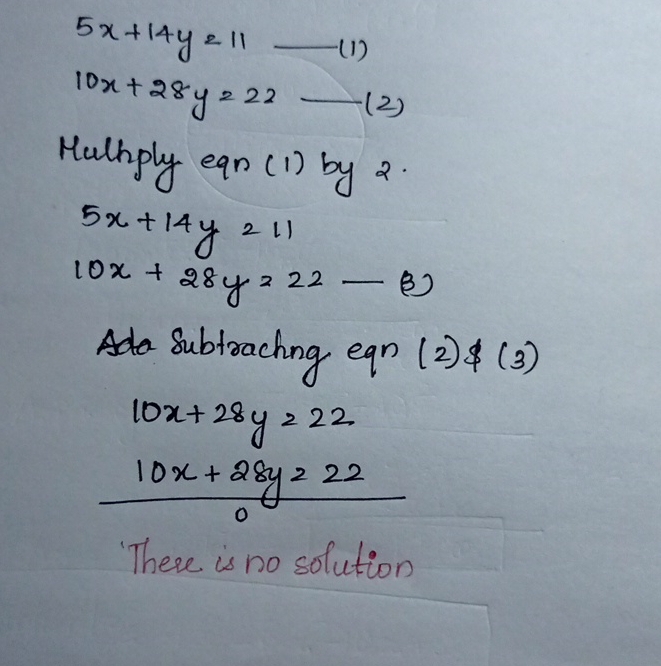 5x+14y = 11 —(1)
10x+28y = 22 —(2)
Multiply eqn (1) by 2.
5x+14y = 11
10x + 28y = 22 — (3)
Subtracting eqn (2) & (3)
10x+28y = 22
10x+28y = 22
0
There is no solution